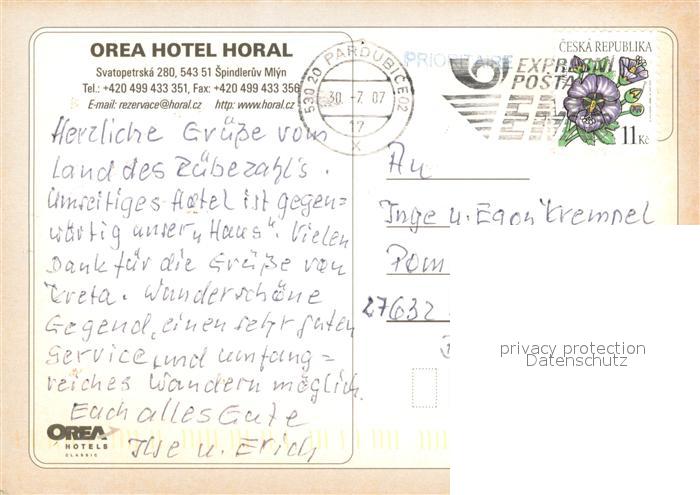 OREA HOTEL HORAL
Svatopetrská 280, 543 51 Špindlerův Mlýn
Tel.: +420 499 433 351, Fax: +420 499 433 356
E-mail: rezervace@horal.cz http: www.horal.cz
Herzliche Grüße vom
Land des Rübezahl's.
Umseitiges Hotel ist gegen=
wärtig unser „Haus". Vielen
Dank für die Grüße von
Kreta. Wunderschöne
Gegend, einen sehr guten
Service und umfang=
reiches Wandern möglich.
Euch alles Gute
Ilse u. Erich
OREA
HOTELS
CLASSIC
530 20 PARDUBICE 02
30. -7. 07
17
X
PRIORITAIRE
EXPRESNÍ
POŠTA
EMS
ČESKÁ REPUBLIKA
11 Kč
An
Inge u. Egon Krempel
Pom
27632
privacy protection
Datenschutz